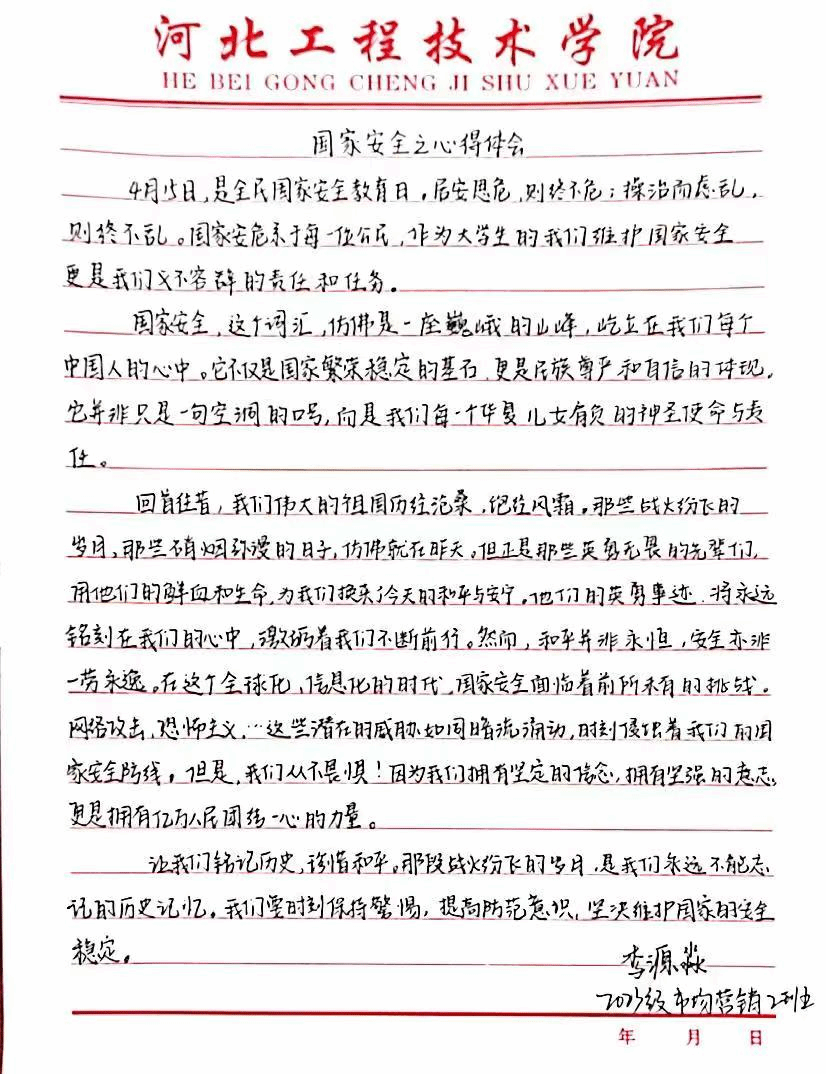 河北工程技术学院
HE BEI GONG CHENG JI SHU XUE YUAN
国家安全之心得体会
4月15日,是全民国家安全教育日。居安思危,则终不危;操治而虑乱,
则终不乱。国家安危系于每一位公民,作为大学生的我们维护国家安全
更是我们义不容辞的责任和任务。
国家安全,这个词汇,仿佛是一座巍峨的山峰,屹立在我们每个
中国人的心中。它不仅是国家繁荣稳定的基石,更是民族尊严和自信的体现。
它并非只是一句空洞的口号,而是我们每一个华夏儿女肩负的神圣使命与责
任。
回首往昔,我们伟大的祖国历经沧桑,饱经风霜。那些战火纷飞的
岁月,那些硝烟弥漫的日子,仿佛就在昨天。但正是那些英勇无畏的先辈们,
用他们的鲜血和生命,为我们换来了今天的和平与安宁。他们的英勇事迹,将永远
铭刻在我们的心中,激励着我们不断前行。然而,和平并非永恒,安全亦非
一劳永逸。在这个全球化、信息化的时代,国家安全面临着前所未有的挑战。
网络攻击,恐怖主义,…这些潜在的威胁如同暗流涌动,时刻侵蚀着我们的国
家安全防线。但是,我们从不畏惧!因为我们拥有坚定的信念,拥有坚强的意志,
更是拥有亿万人民团结一心的力量。
让我们铭记历史,珍惜和平。那段战火纷飞的岁月,是我们永远不能忘
记的历史记忆。我们要时刻保持警惕,提高防范意识,坚决维护国家的安全
稳定。
李源淼
2023级市场营销2班
年 月 日